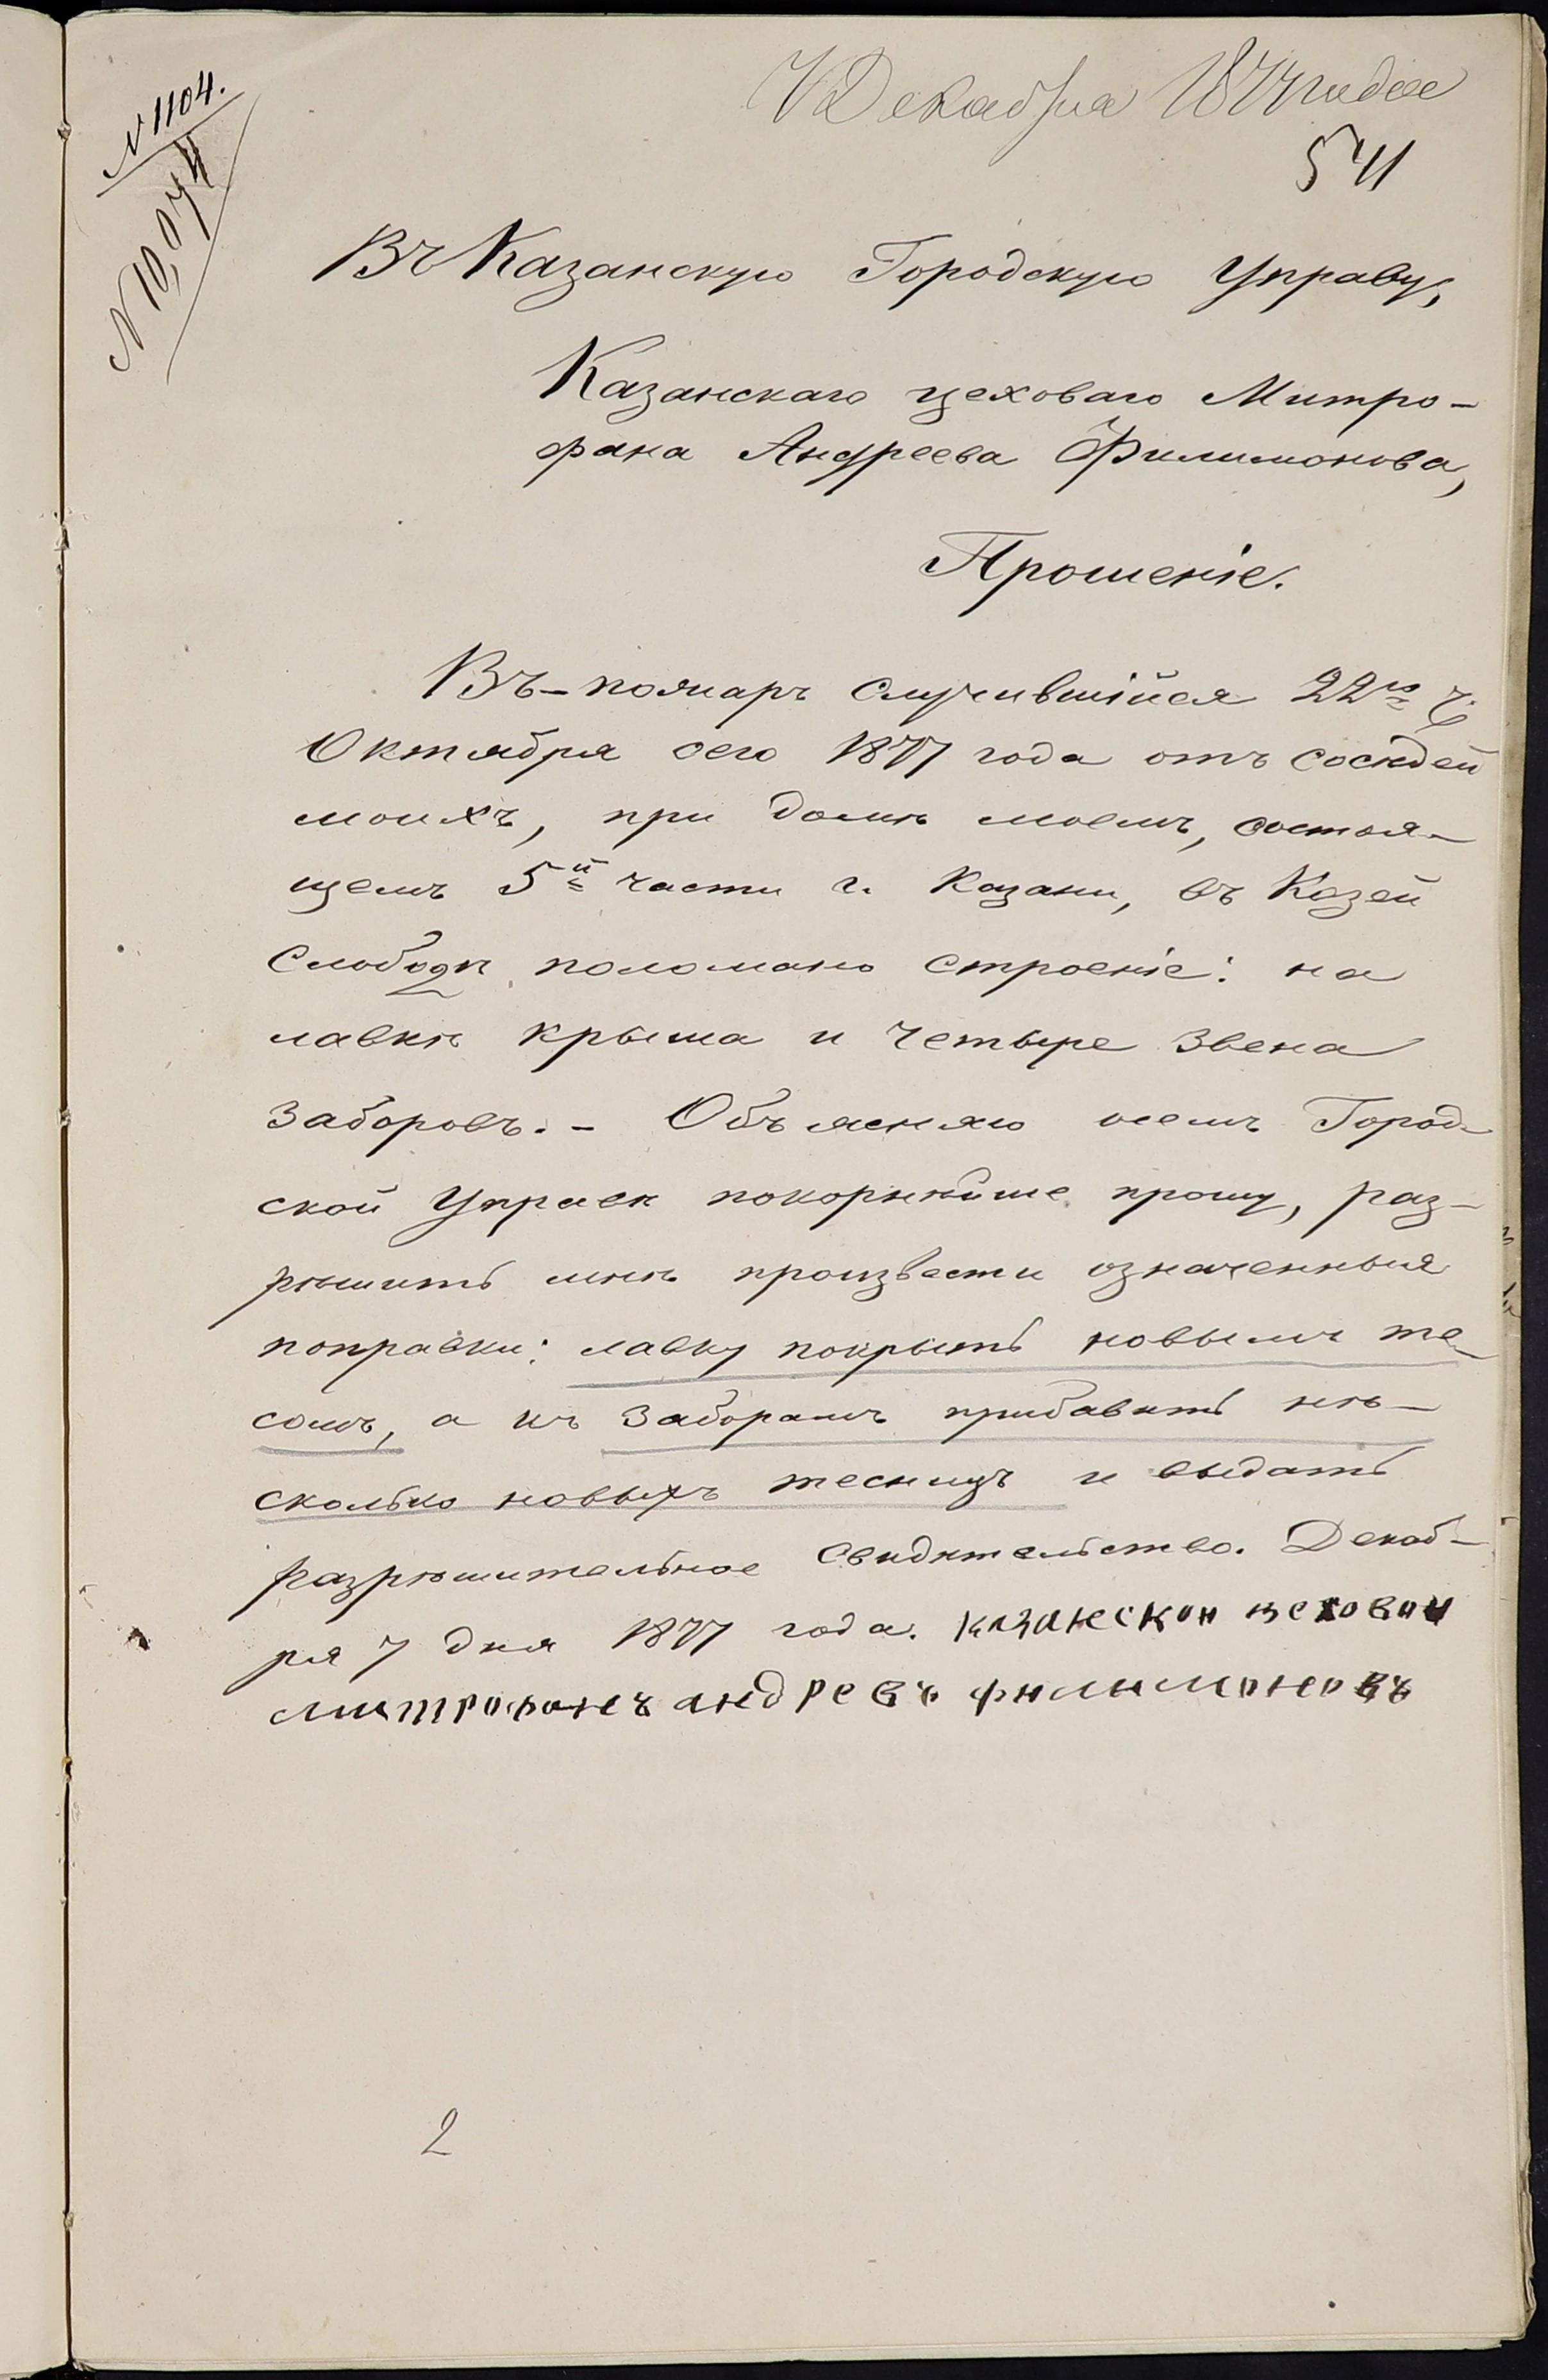 7 Декабря 1877 года
541
N 1104.
N 10,074
Въ Казанскую Городскую Управу,
Казанскаго цеховаго Митро-
фана Андреева Филимонова,
Прошеніе.
Въ-пожаръ случившійся 22го ч.
Октября сего 1877 года отъ сосѣдей
моихъ, при домѣ моемъ, состоя-
щемъ 5й части г. Казани, въ Козей
Слободѣ поломано строеніе: на
лавкѣ крыша и четыре звена
заборовъ. - Объясняю осемъ Город-
ской Управѣ покорнѣйше прошу, раз-
рѣшить мнѣ произвести означенныя
поправки: лавку покрыть новымъ те-
сомъ, а къ заборамъ прибавить нѣ-
сколько новыхъ тесницъ и выдать
разрѣшительное свидѣтельство. Декаб-
ря 7 дня 1877 года. казанскои цеховои
митрофанъ андревъ филимоновъ
2